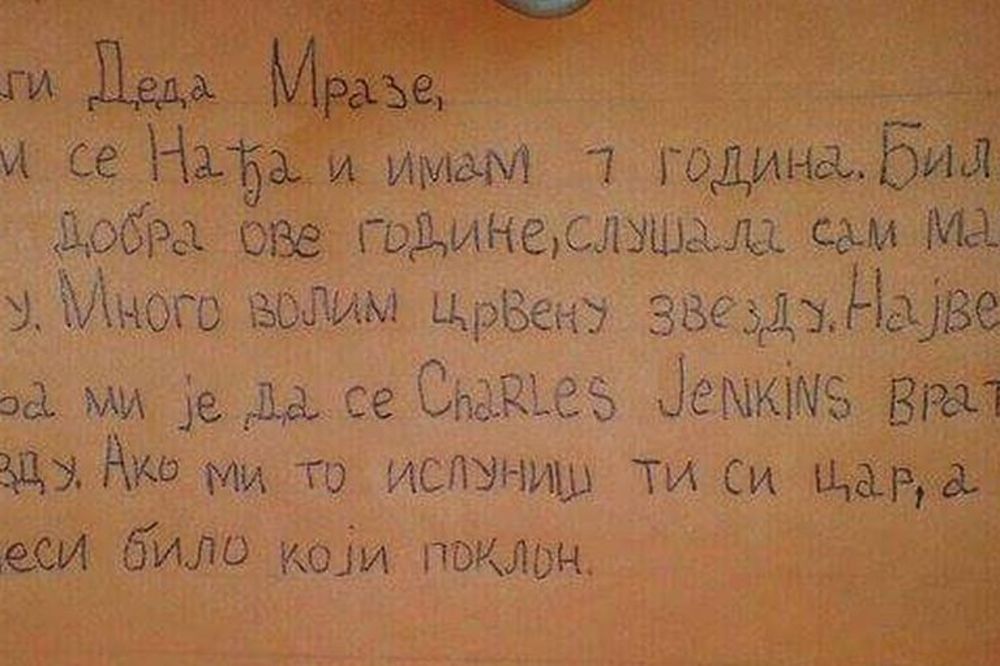 ги Деда Мразе,
м се Нађа и имам 7 година. Бил
добра ове године, слушала сам ма
у. Много волим црвену звезду. Најве
ба ми је да се ChaRLes JeNKiNS врат
зду. Ако ми то испуниш ти си цар, а
неси било који поклон.